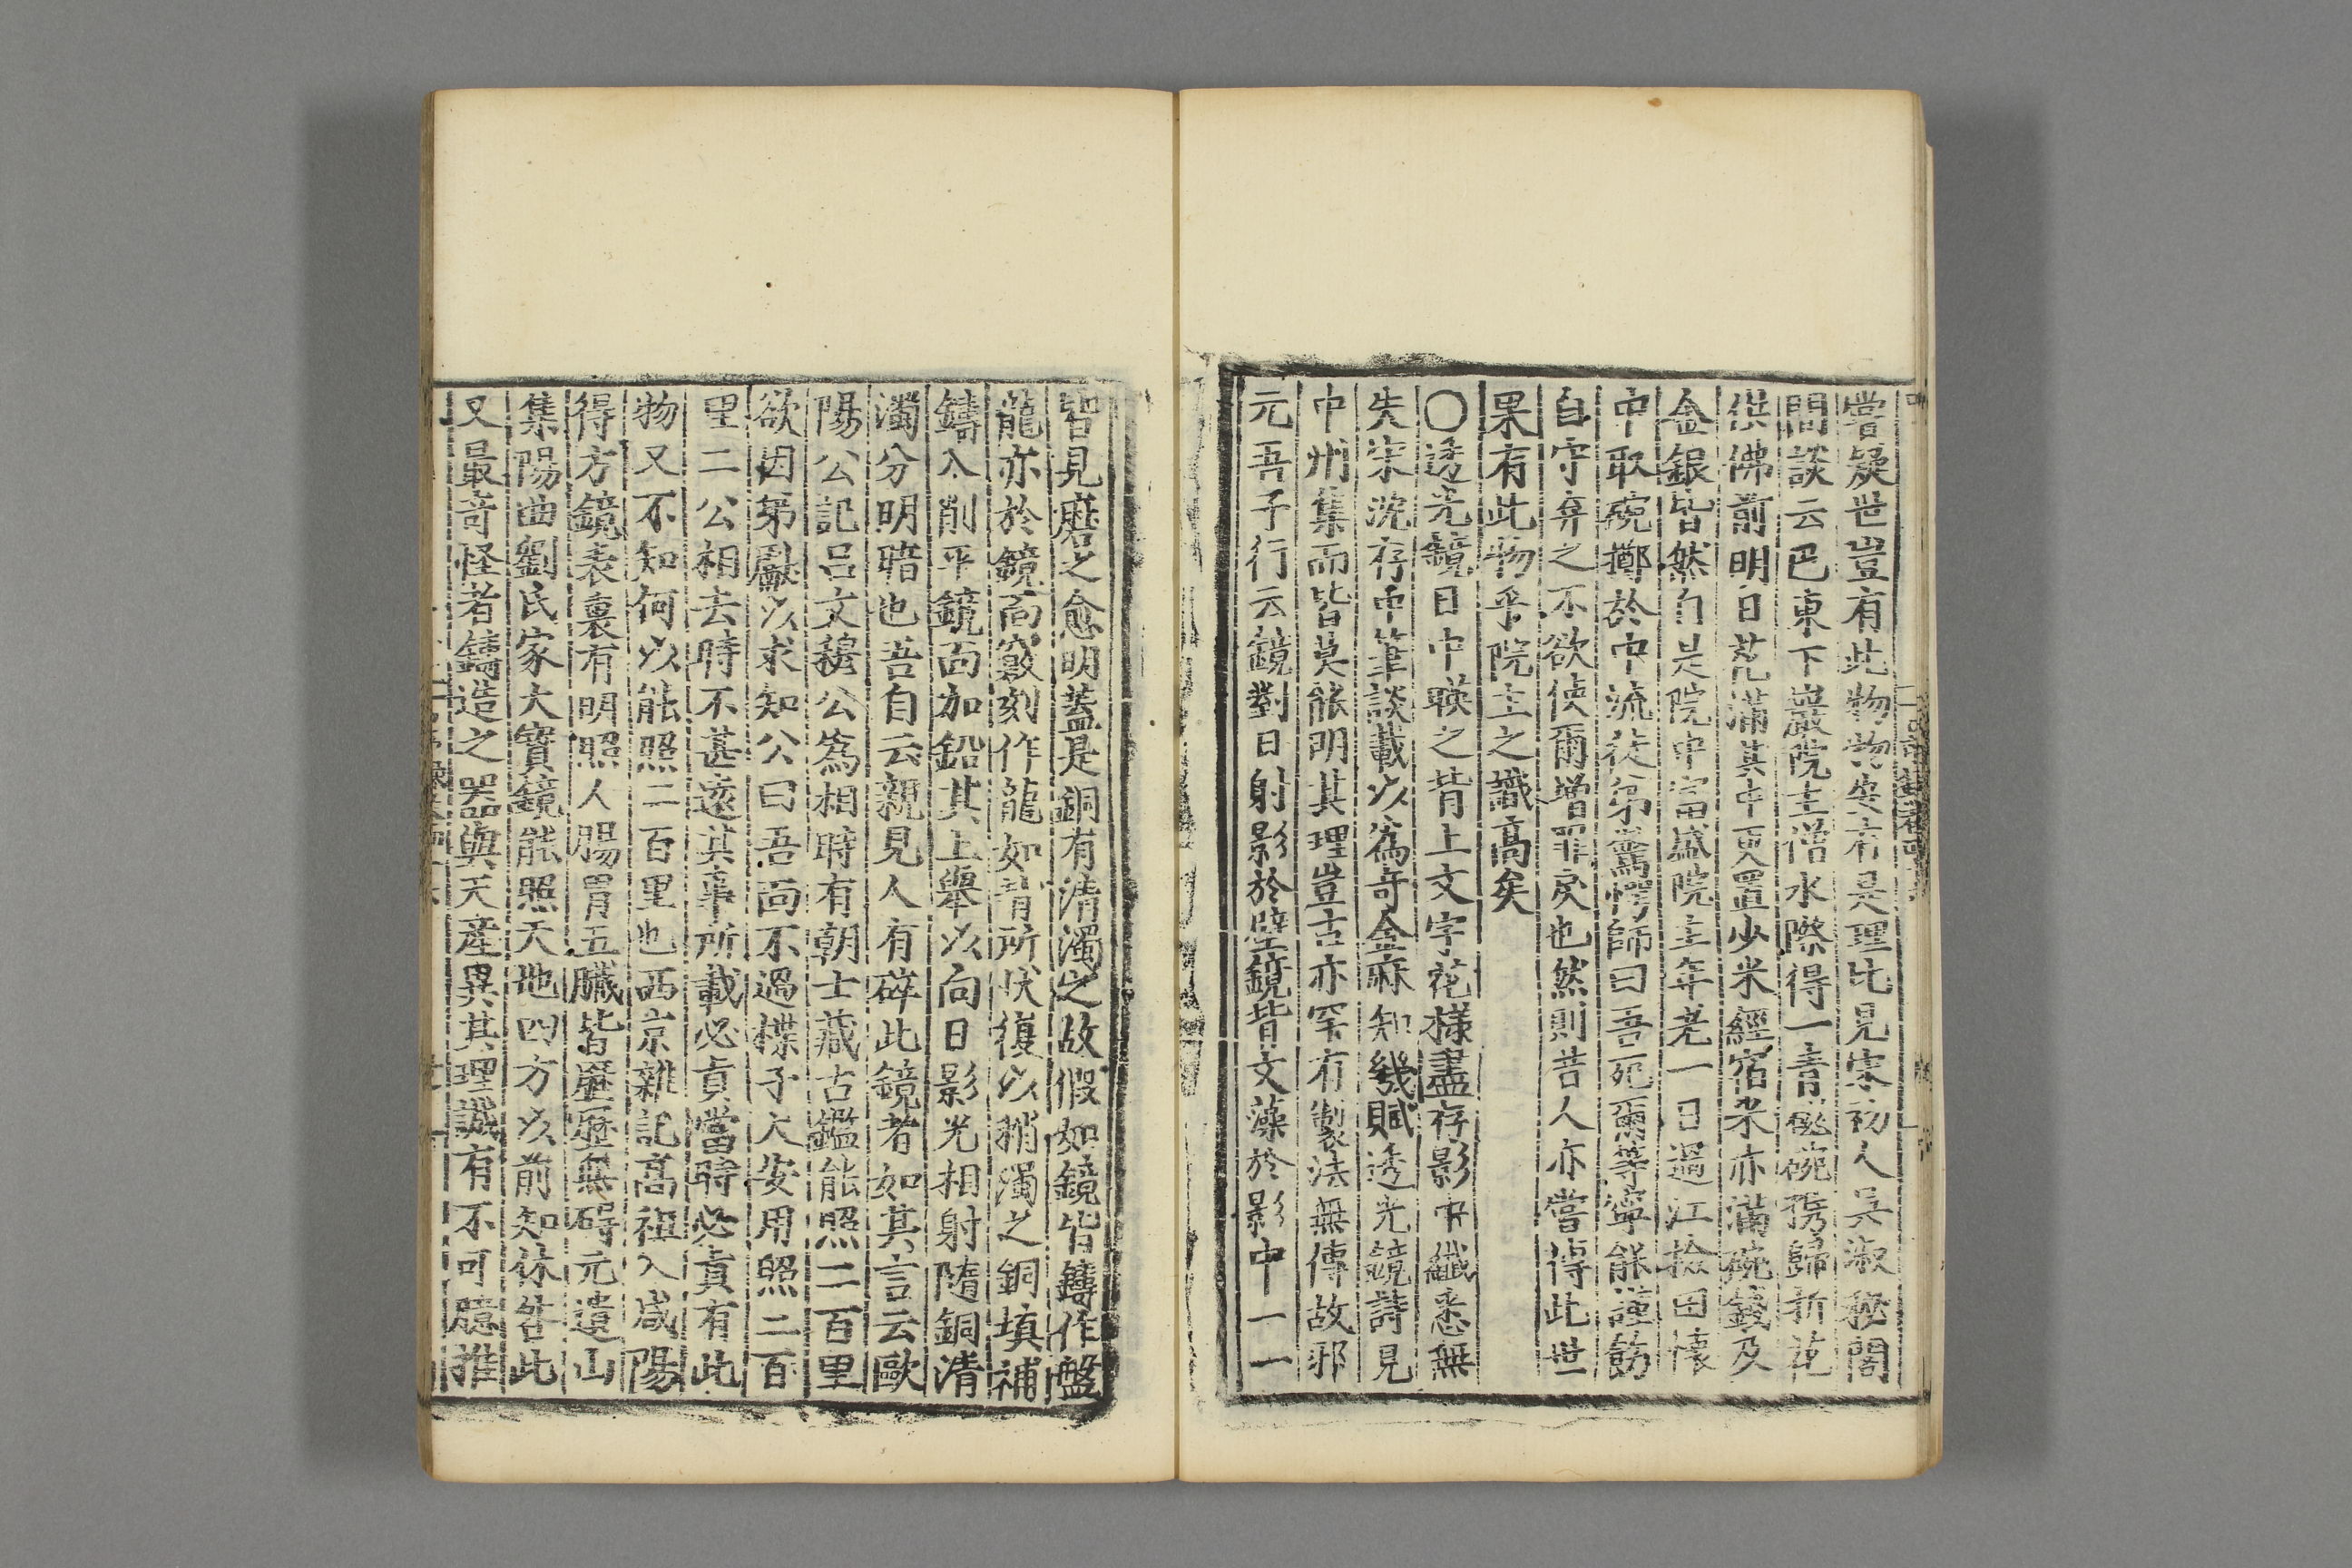 嘗疑世豈有此物物安有是理比見宋初人吳淑秘閣
間談云巴東下巖院主僧水際得一青磁碗携歸折花
供佛前明日花滿其中更置少米經宿米亦滿碗錢及
金銀皆然自是院中富盛院主年老一日過江撿田懷
中取碗擲於中流徒弟驚愕師曰吾死爾等寧能謹飭
自守弃之不欲使爾增罪戾也然則昔人亦嘗得此世
果有此物乎院主之識高矣
〇透光鏡日中暎之背上文字花樣盡存影中纖悉無
失宋沈存中筆談載以為奇金麻知幾賦透光鏡詩見
中州集而皆莫能明其理豈古亦罕有製法無傳故邪
元吾子行云鏡對日射影於壁鏡背文藻於影中一一
皆見磨之愈明蓋是銅有清濁之故假如鏡皆鑄作盤
龍亦於鏡面竅刻作龍如背所狀復以稍濁之銅填補
鑄入削平鏡面加鉛其上舉以向日影光相射隨銅清
濁分明暗也吾自云親見人有碎此鏡者如其言云歐
陽公記呂文穆公為相時有朝士藏古鑑能照二百里
欲因第獻以求知公曰吾面不過楪子大安用照二百
里二公相去時不甚遠其事所載必真當時必真有此
物又不知何以能照二百里也西京雜記高祖入咸陽
得方鏡表裏有明照人腸胃五臟皆歷歷無碍元遺山
集陽曲劉氏家大寶鏡能照天地四方以前知休咎此
又最奇怪者鑄造之器與天產異其理誠有不可臆推